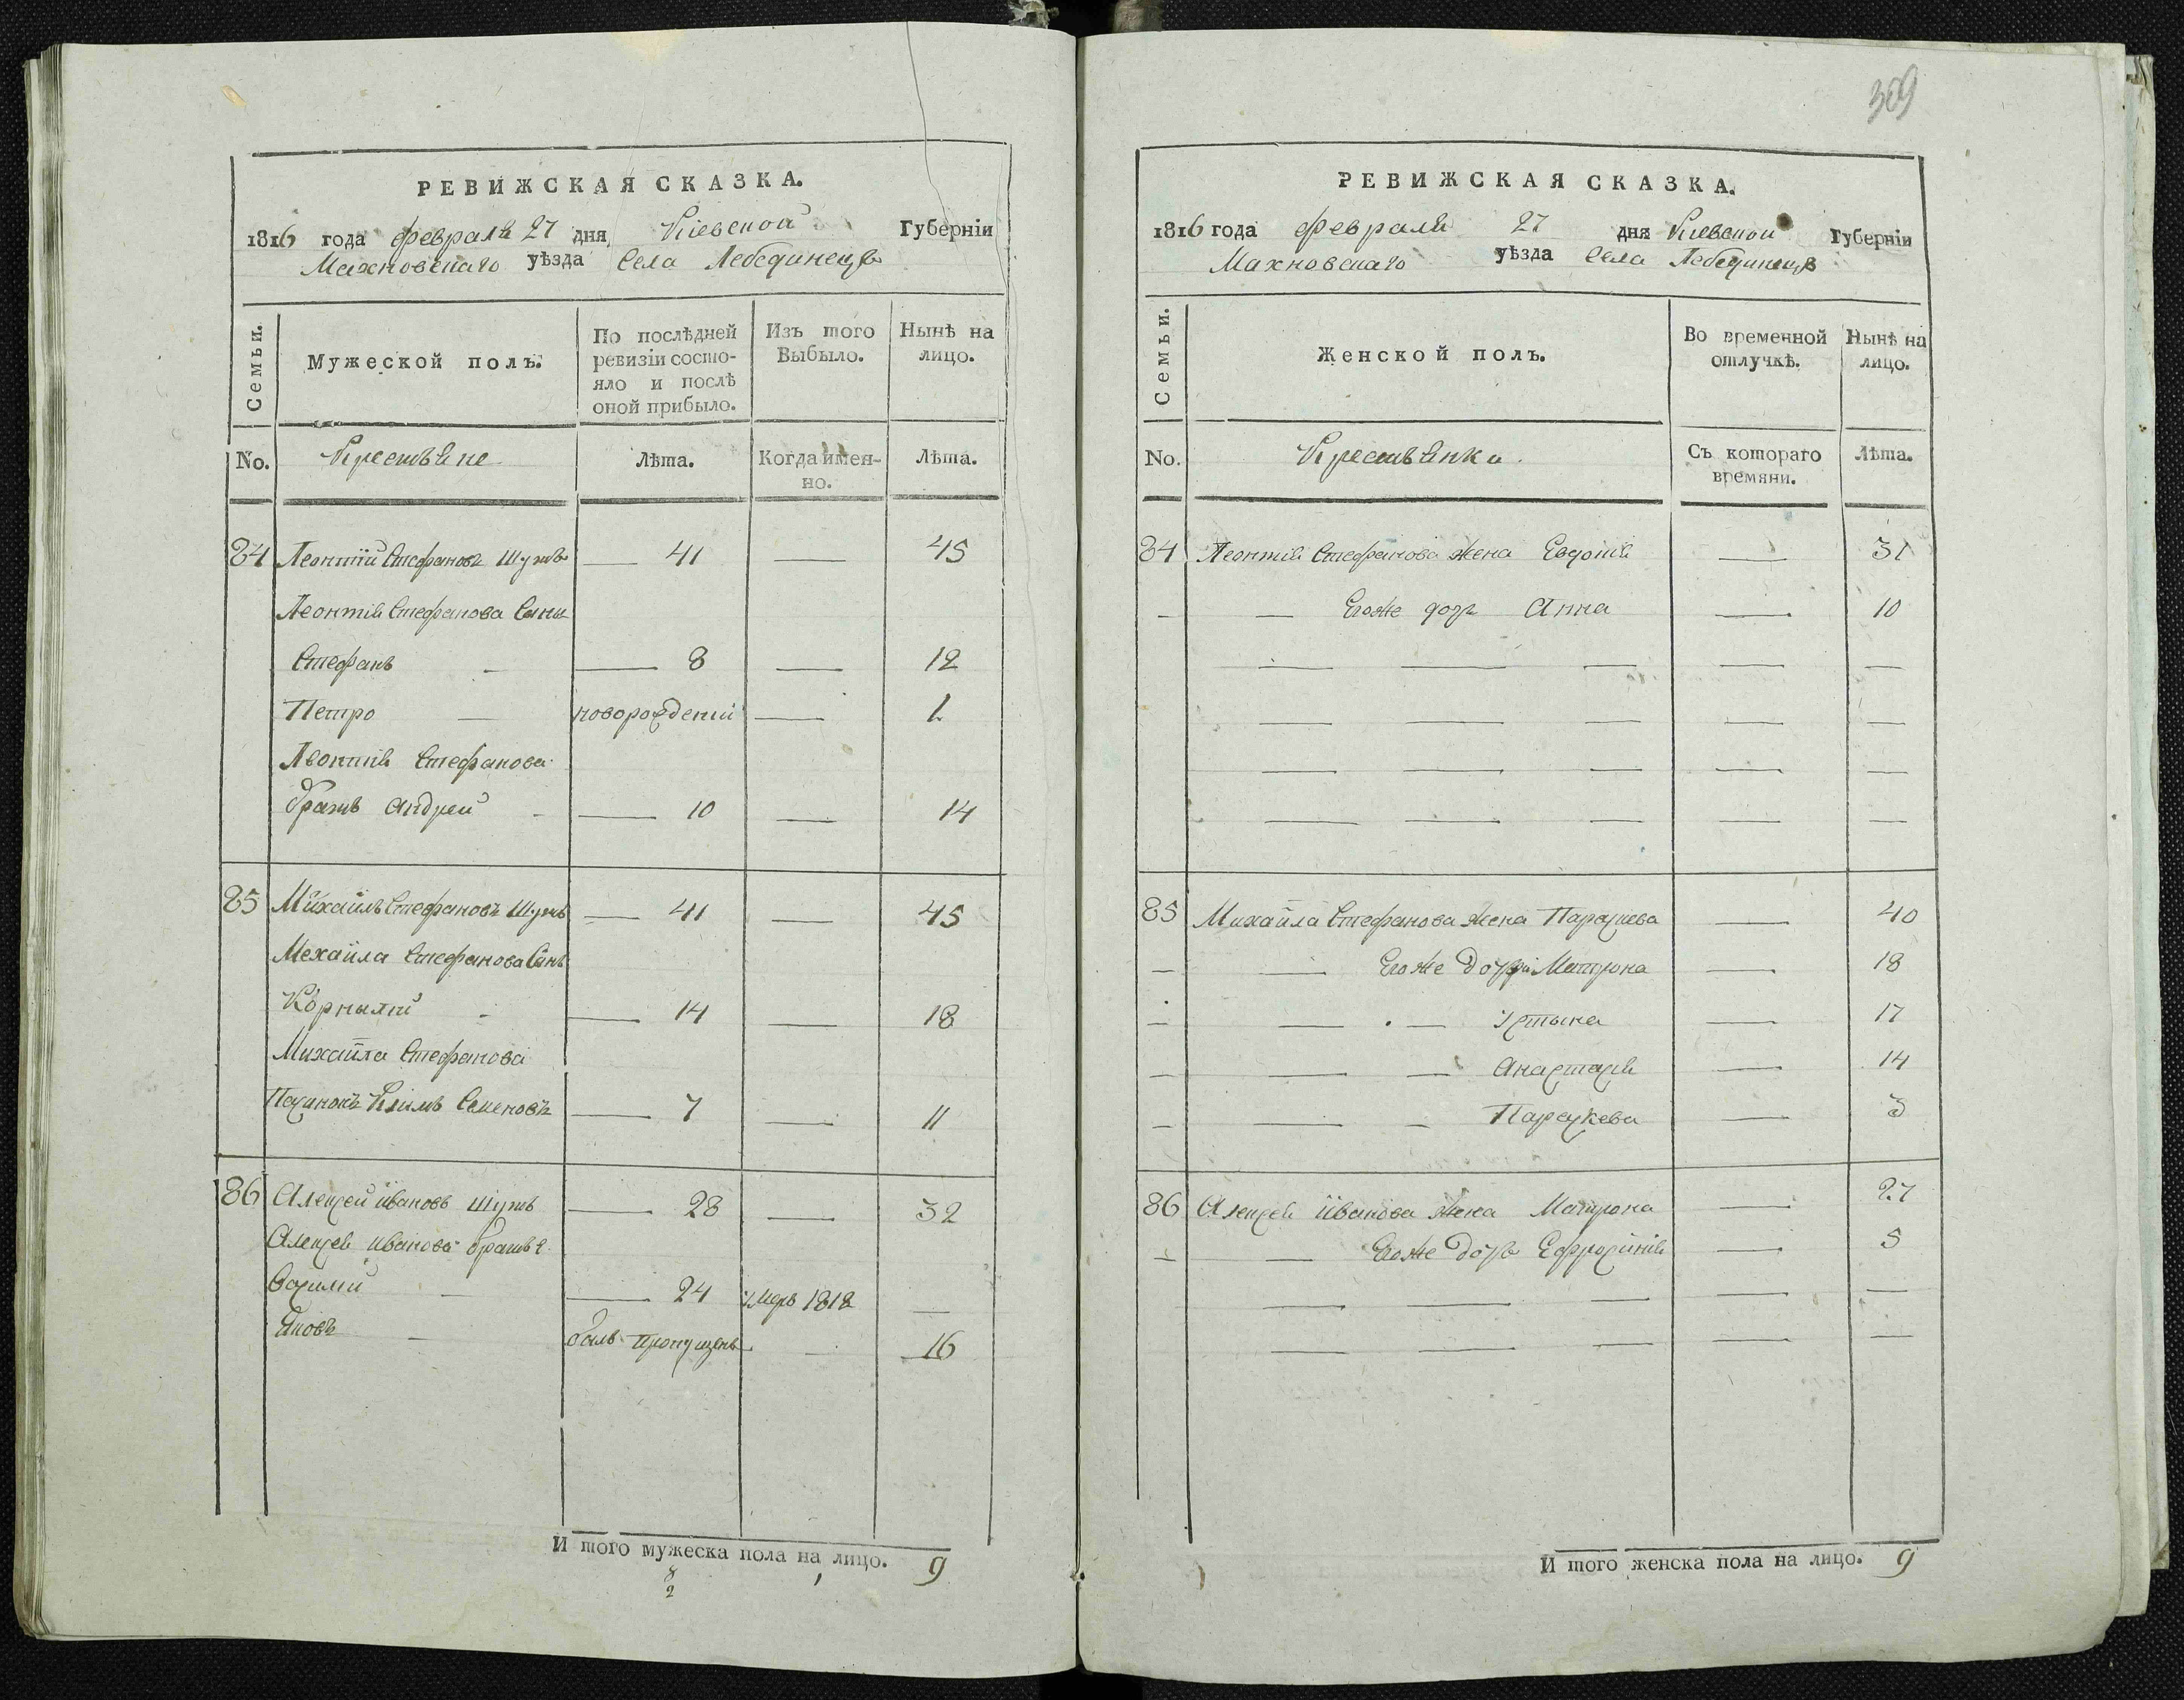 309
РЕВИЖСКАЯ СКАЗКА.
1816 года февраля 27 дня Кіевской Губерніи
Махновскаго уѣзда Села Лебединецъ
Семьи.
Мужеской полъ.
По послѣдней ревизіи состояло и послѣ оной прибыло.
Изъ того Выбыло.
Нынѣ на лицо.
No. Крестьяне Лѣта. Когда именно. Лѣта.
84 Леонтій Стефановъ Шутъ — 41 — 45
Леонтія Стефанова Сыны
Стефанъ — — 8 — 12
Петро — новорожденій — 1
Леонтія Стефанова
братъ Андрей - — 10 — 14
85 Михайлъ Стефановъ Шутъ — 41 — 45
Михайла Стефанова Сынъ
Корнылій - — 14 — 18
Михайла Стефанова
Пасинокъ Климъ Семеновъ — 7 — 11
86 Алексей Ивановъ Шутъ — 28 — 32
Алексея Иванова братья
Василий — — 24 умеръ 1812 —
Яковъ — былъ пропущенъ — 16
И того мужеска пола на лицо. 9
8
2
РЕВИЖСКАЯ СКАЗКА.
1816 года февраля 27 дня Кіевской Губерніи
Махновскаго уѣзда Села Лебединецъ
Семьи.
Женской полъ.
Во временной отлучкѣ.
Нынѣ на лицо.
No. Крестьянки. Съ котораго времяни. Лѣта.
84 Леонтія Стефанова жена Евдокія — 31
- — Егоже дочь Анна — 10
85 Михайла Стефанова жена Параскева — 40
— — Егоже дочери Матрона — 18
— — — Устына — 17
— — — Анастасія — 14
— — — Параскева — 3
86 Алексея Иванова жена Матрона — 27
— — Егоже дочь Ефросинія — 5
И того женска пола на лицо. 9